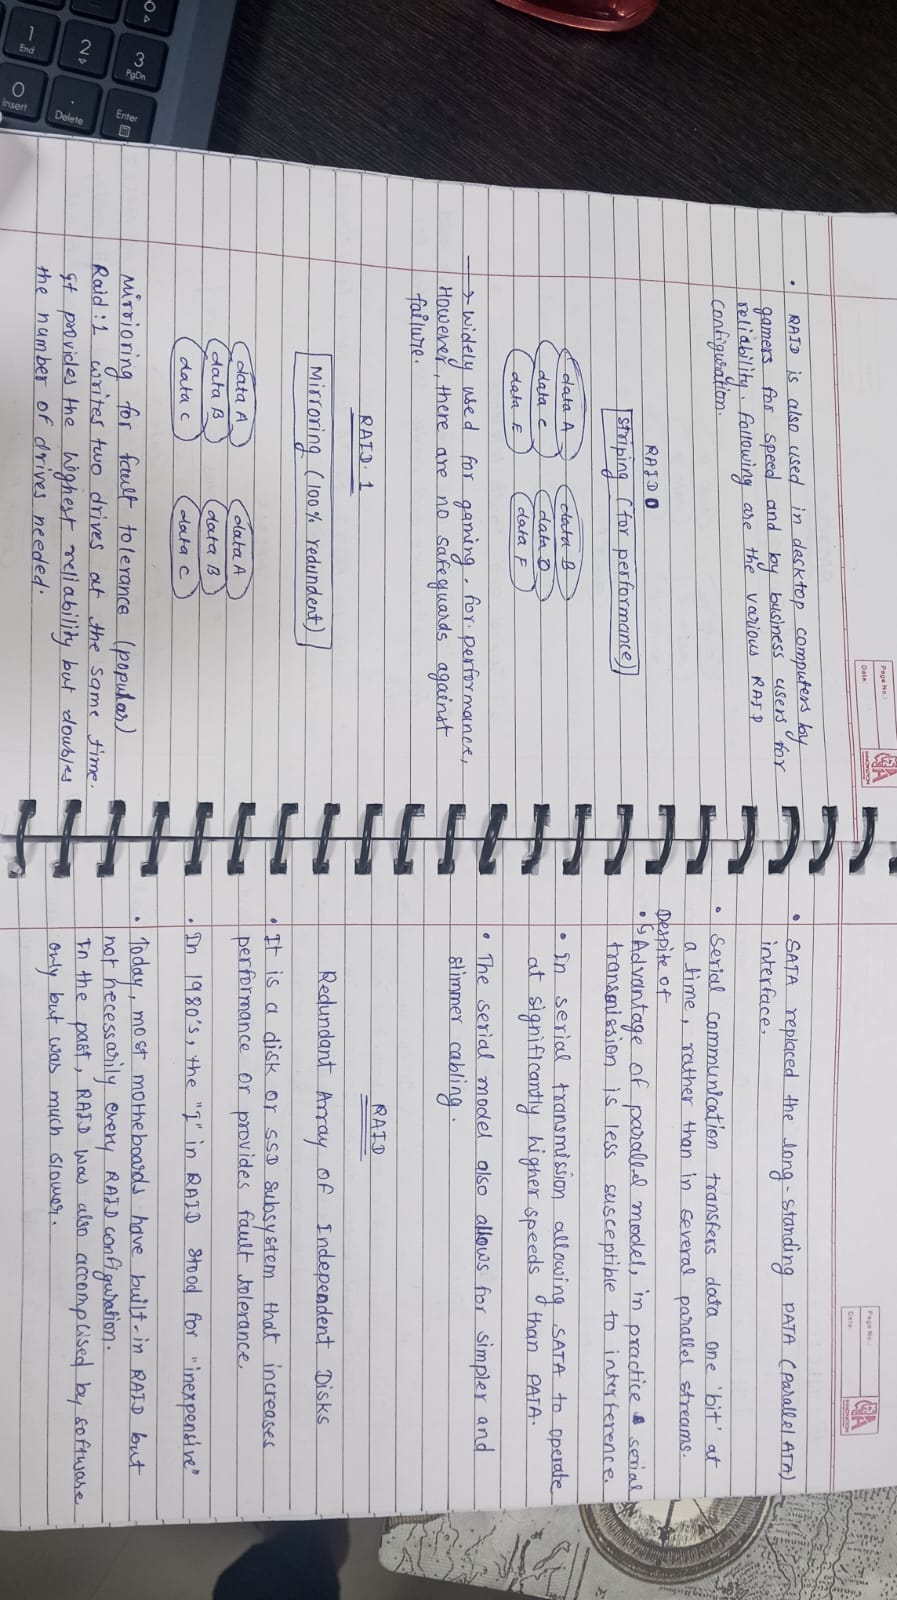 Page No.:
Date:
INNOVATION
• RAID is also used in desktop computers by
gamers for speed and by business users for
reliability. Following are the various RAID
configuration.
RAID 0
Striping (for performance)
data A data B
data C data D
data E data F
→ Widely used for gaming. for performance,
However, there are no safeguards against
failure.
RAID. 1
Mirroring (100% redundent)
data A data A
data B data B
data C data C
Mirrioring for fault tolerance (popular)
Raid : 1 writes two drives at the same time.
It provides the highest reliability but doubles
the number of drives needed.
Page No.:
Date:
INNOVATION
• SATA replaced the long-standing PATA (Parallel ATA)
interface.
• Serial communication transfers data one 'bit' at
a time, rather than in several parallel streams.
Despite of
• Advantage of parallel model, in practice serial
transmission is less susceptible to interference.
• In serial transmission allowing SATA to operate
at significantly higher speeds than PATA.
• The serial model also allows for simpler and
slimmer cabling.
RAID
Redundant Array of Independent Disks
• It is a disk or SSD subsystem that increases
performance or provides fault tolerance.
• In 1980's, the "I" in RAID stood for "inexpensive"
• Today, most motheboards have built-in RAID but
not necessarily every RAID configuration.
In the past, RAID was also accomplised by software
only but was much slower.
3
PgDn
Enter
2
.
Delete
1
End
0
Insert